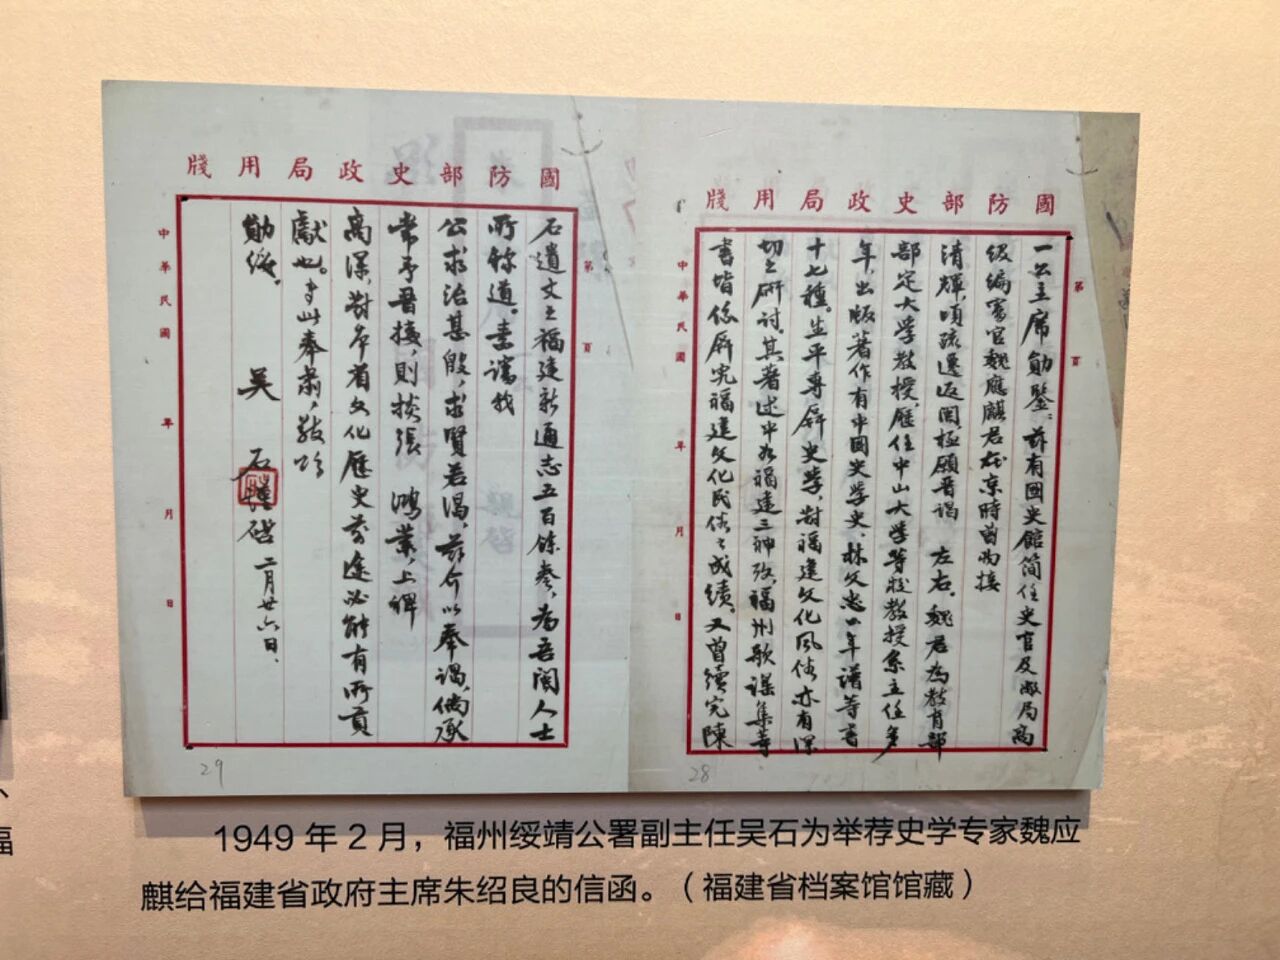 國防部史政局用牋
第 頁
一公主席勛鑒：茲有國史館简任史官及敝局高
级编審官魏應麒君在京時曾面接
清輝，頃疏遷返閩，極願晋謁 左右。魏君為教育部
部定大学教授，歷任中山大学等校教授系主任多
年，出版著作有中國史学史、林文忠公年谱等书
十七種。生平專研史学，對福建文化風俗亦有深
切之研讨。其著述中如福建三神攷、福州歌谣集等
書皆係研究福建文化民俗之成绩。又曾续完陳
中華民國 年 月 日
28
國防部史政局用牋
第 頁
石遺文之福建新通志五百餘卷，為吾閩人士
所稱道。素谂我
公求治甚殷，求賢若渴，茲介以奉謁，倘承
常予晋接，則掞張 鴻業，上裨
高深，對本省文化歷史前途必能有所貢
獻也。专此奉肃，敬頌
勛绥。 吴 石 謹啓 二月廿六日
中華民國 年 月 日
29
1949 年 2 月，福州绥靖公署副主任吴石为举荐史学专家魏应
麒给福建省政府主席朱绍良的信函。（福建省档案馆馆藏）
、
福